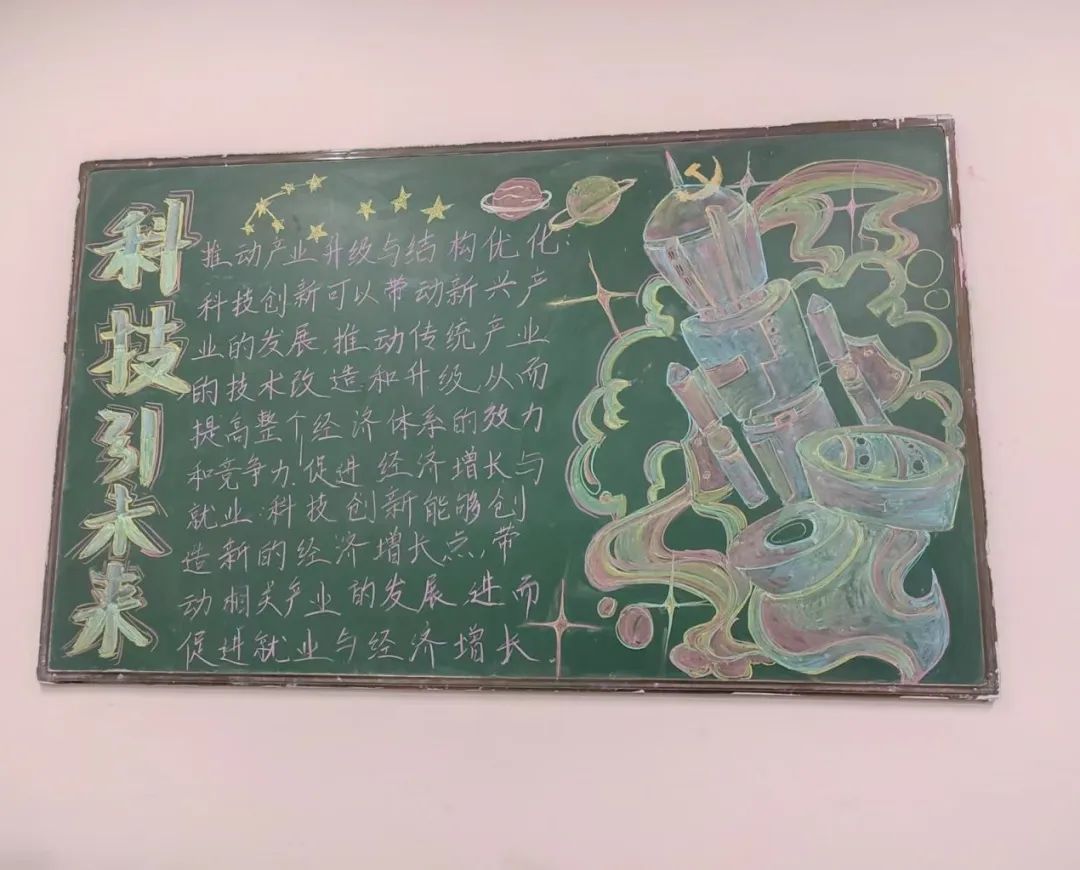 科技引未来
推动产业升级与结构优化:
科技创新可以带动新兴产
业的发展,推动传统产业
的技术改造和升级,从而
提高整个经济体系的效力
和竞争力,促进经济增长与
就业:科技创新能够创
造新的经济增长点,带
动相关产业的发展,进而
促进就业与经济增长.